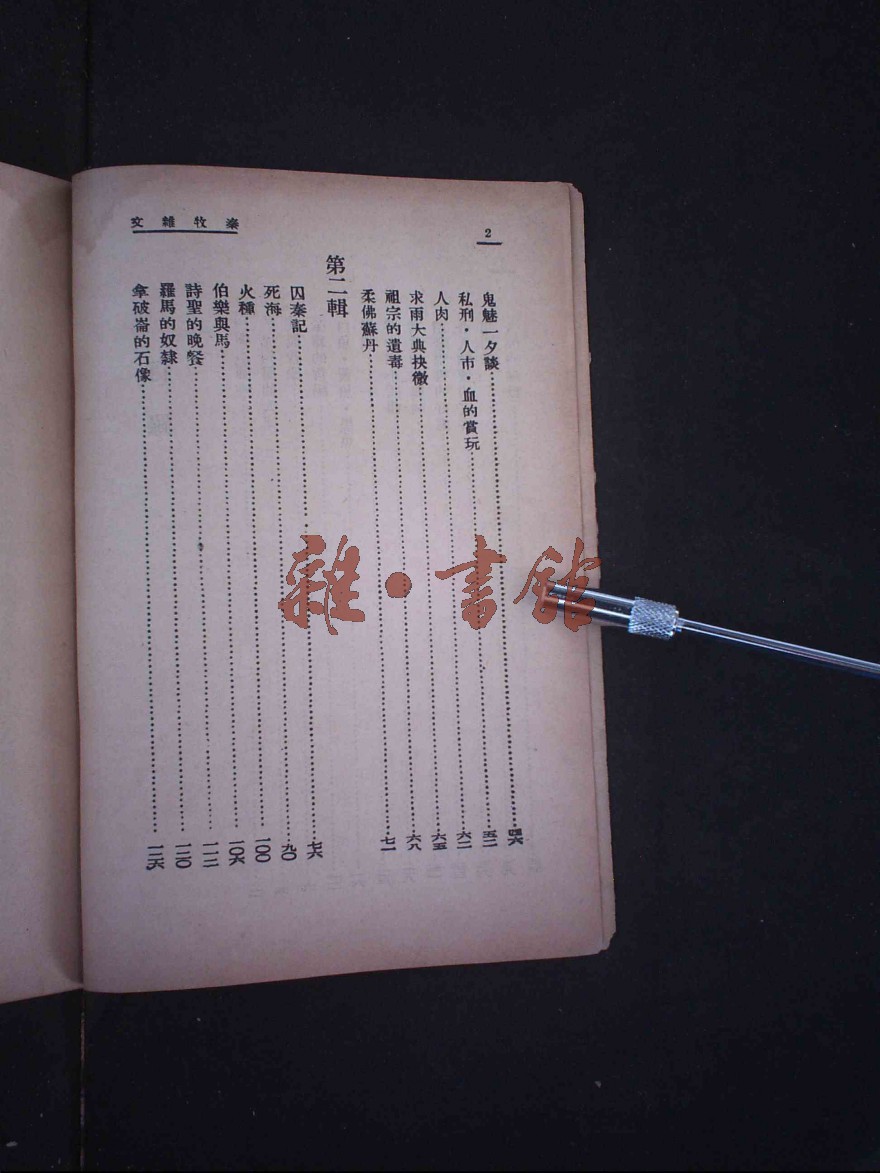 2
秦牧雜文
鬼魅一夕談……四六
私刑・人市・血的賞玩……五二
人肉……六二
求雨大典抉微……六五
祖宗的遺毒……六八
柔佛蘇丹……七一
第二輯
囚秦記……七六
死海……九〇
火種……一〇〇
伯樂與馬……一〇六
詩聖的晚餐……一一二
羅馬的奴隸……一二〇
拿破崙的石像……一二六
雜・書館